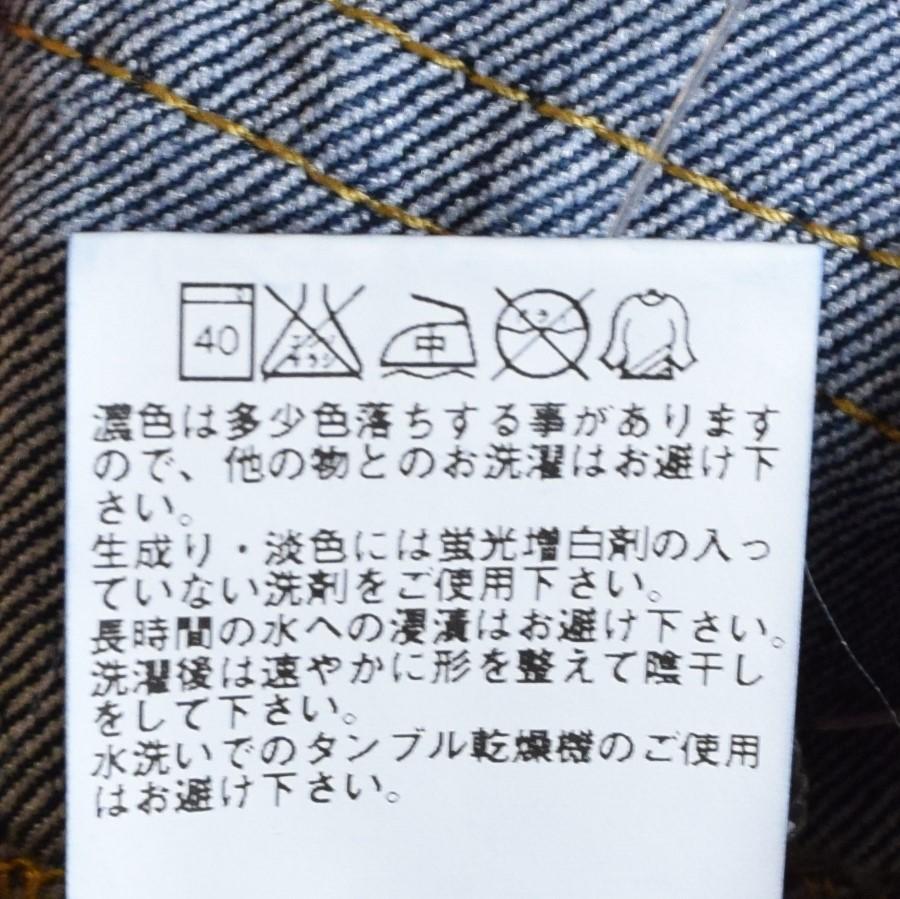 40 エンソ サラシ 中
濃色は多少色落ちする事があります
ので、他の物とのお洗濯はお避け下
さい。
生成り・淡色には蛍光増白剤の入っ
ていない洗剤をご使用下さい。
長時間の水への浸漬はお避け下さい。
洗濯後は速やかに形を整えて陰干し
をして下さい。
水洗いでのタンブル乾燥機のご使用
はお避け下さい。